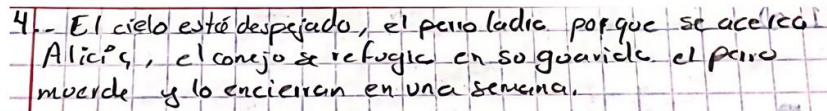 4.- El cielo está despejado, el perro ladra porque se acerca
Alicia, el conejo se refugia en so guarida el perro
muerde y lo encierran en una semana.